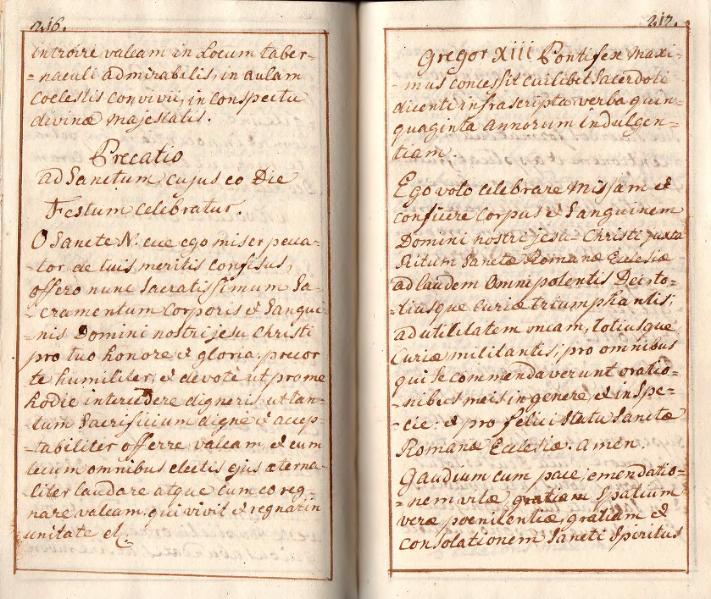 216.
introire valeam in Locum taber-
=naculi admirabilis, in aulam
Coelestis convivii, in conspectu
divinæ Majestatis.
Precatio
ad Sanctum, cujus eo Die
Festum celebratur.
O Sancte N. ecce ego miser pecca-
tor de tuis meritis confisus,
offero nunc Sacratissimum Sa-
cramentum Corporis et Sangui-
nis Domini nostri jesu Christi
pro tuo honore et gloria. precor
te humiliter, et devote ut pro me
hodie intercedere digneris, ut tan-
tum Sacrificium digne et accep-
tabiliter offerre valeam et cum
tecum omnibus electis ejus æterna-
liter laudare atque cum eo reg-
nare valeam. qui vivit et regnat in
unitate etc.
217.
Gregor XIII Pontifex Maxi-
mus concessit cuilibet Sacerdoti
dicenti infrascripta verba quin-
quaginta Annorum indulgen=
tiam.
Ego volo celebrare Missam et
conficere Corpus et Sanguinem
Domini nostri jesu Christi juxta
Ritum Sanctæ Romanæ Ecclesiæ
ad laudem omnipotentis Dei to-
tiusque Curiæ triumphantis;
ad utilitatem meam, totiusque
Curiæ militantis; pro omnibus
qui se commendaverunt oratio-
=nibus meis in genere, et in Spe-
=cie: et pro felici Statu Sanctæ
Romanæ Ecclesiæ. Amen
Gaudium cum pace, emendatio=
=nem vitæ, gratiam Spatium
veræ poenitentiæ, gratiam et
consolationem Sancti Spiritus